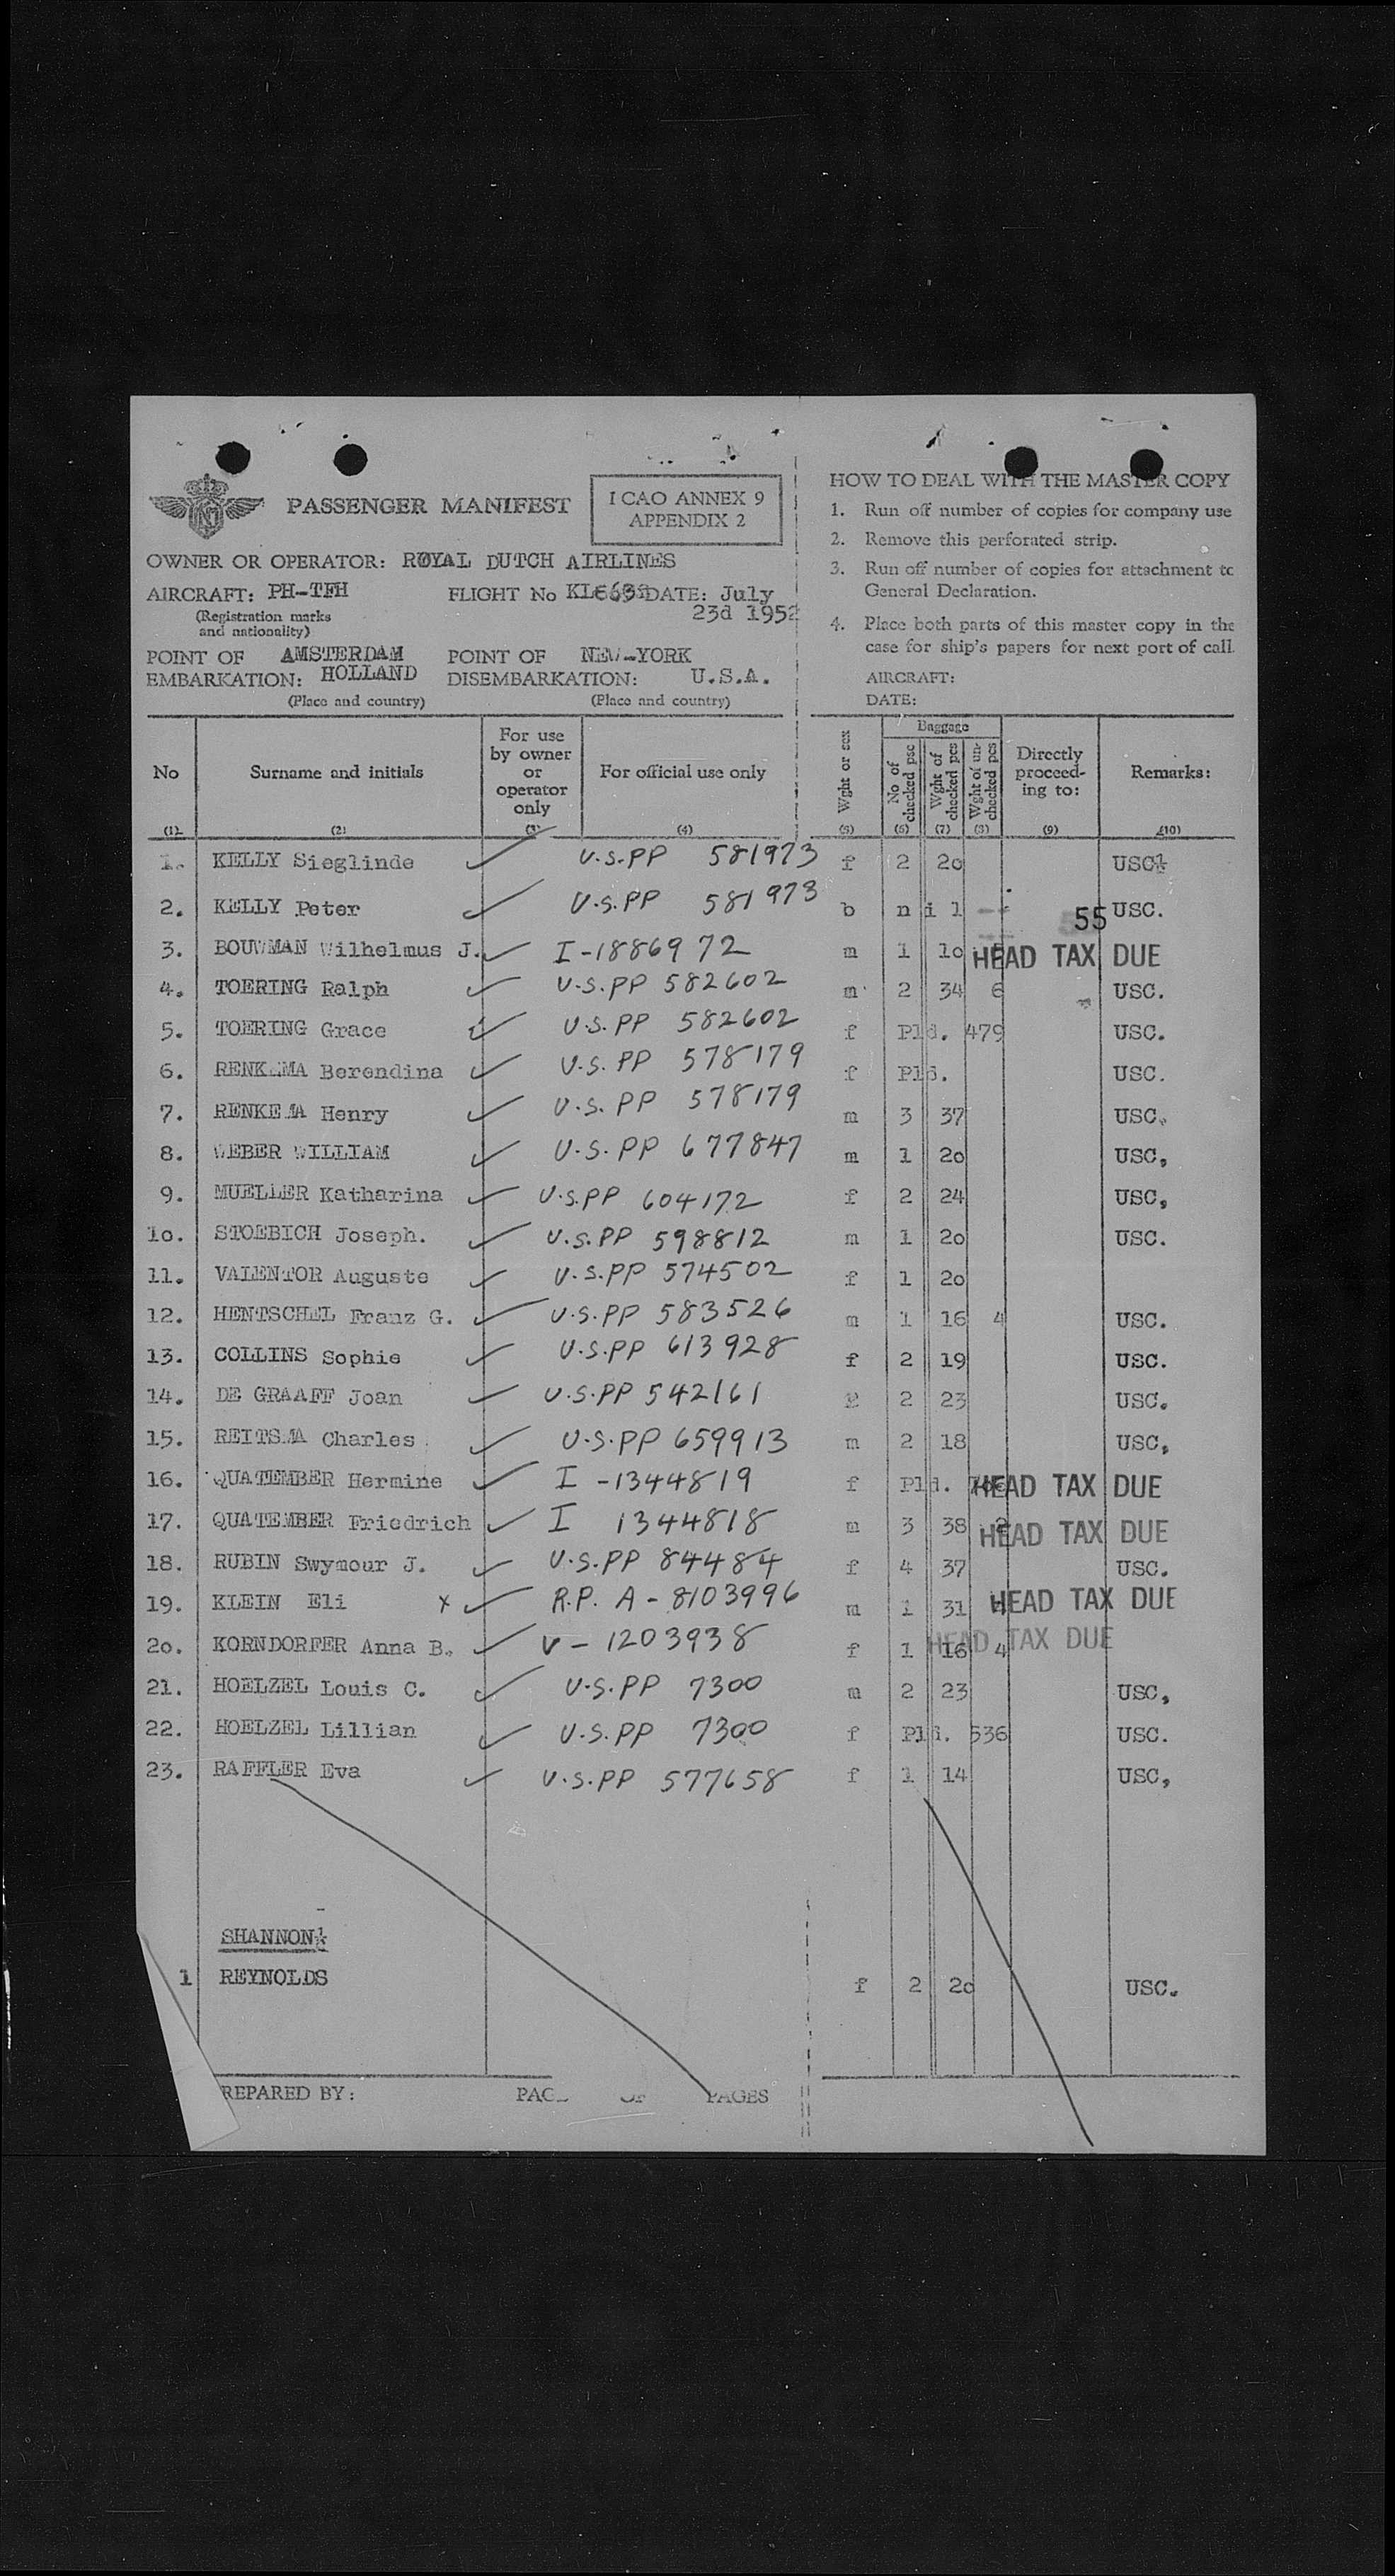 PASSENGER MANIFEST
I CAO ANNEX 9
APPENDIX 2
OWNER OR OPERATOR: ROYAL DUTCH AIRLINES
AIRCRAFT: PH-TFH FLIGHT No DATE: July
(Registration marks and nationality) 23d 1952
POINT OF AMSTERDAM POINT OF NEW-YORK
EMBARKATION: HOLLAND DISEMBARKATION: U.S.A.
(Place and country) (Place and country)
HOW TO DEAL WITH THE MASTER COPY
1. Run off number of copies for company use
2. Remove this perforated strip.
3. Run off number of copies for attachment to
General Declaration.
4. Place both parts of this master copy in the
case for ship's papers for next port of call.
AIRCRAFT:
DATE:
No Surname and initials For use by owner or operator only For official use only Wght or sex Baggage No of checked psc Wght of checked pcs Wght of un-checked pcs Directly proceed-ing to: Remarks:
(1) (2) (3) (4) (5) (6) (7) (8) (9) (10)
1. KELLY Sieglinde ✓ U.S.PP 581973 f 2 2o USC
2. KELLY Peter ✓ U.S.PP 581973 b n i l -- 55 USC.
3. BOUWMAN Wilhelmus J. ✓ I-1886972 m 1 1o HEAD TAX DUE
4. TOERING Ralph ✓ U.S.PP 582602 m 2 34 6 USC.
5. TOERING Grace ✓ U.S.PP 582602 f Pld. 479 USC.
6. RENKEMA Berendina ✓ U.S.PP 578179 f Pld. USC.
7. RENKEMA Henry ✓ U.S.PP 578179 m 3 37 USC.
8. WEBER WILLIAM ✓ U.S.PP 677847 m 1 2o USC,
9. MUELLER Katharina ✓ U.S.PP 604172 f 2 24 USC,
1o. STOEBICH Joseph. ✓ U.S.PP 598812 m 1 2o USC.
11. VALENTOR Auguste ✓ U.S.PP 574502 f 1 2o
12. HENTSCHEL Franz G. ✓ U.S.PP 583526 m 1 16 4 USC.
13. COLLINS Sophie ✓ U.S.PP 613928 f 2 19 USC.
14. DE GRAAFF Joan ✓ U.S.PP 542161 2 23 USC.
15. REITSMA Charles ✓ U.S.PP 659913 m 2 18 USC,
16. QUATEMBER Hermine ✓ I -1344819 f Pld. HEAD TAX DUE
17. QUATEMBER Friedrich ✓ I 1344818 m 3 38 2 HEAD TAX DUE
18. RUBIN Swymour J. ✓ U.S.PP 84484 f 4 37 USC.
19. KLEIN Eli x ✓ R.P. A-8103996 m 1 31 HEAD TAX DUE
2o. KORNDORFER Anna B. ✓ V-1203938 f 1 16 4 HEAD TAX DUE
21. HOELZEL Louis C. ✓ U.S.PP 7300 m 2 23 USC,
22. HOELZEL Lillian ✓ U.S.PP 7300 f Pld. 536 USC.
23. RAFFLER Eva ✓ U.S.PP 577658 f 1 14 USC,
SHANNON
1 REYNOLDS f 2 2o USC.
REPARED BY: PAGES